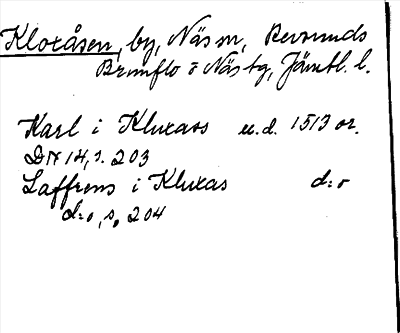 Kloxåsen, by, Näs sn, Revsunds
Brunflo o Näs tg, Jämtl. l.
Karl i Kluxaas u.d. 1513 or.
DN 14, s. 203
Laffrens i Kluxas d:o
d:o, s. 204